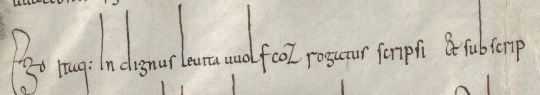 Ego itaq: Indignus leuita uuolfcoz rogatus scripsi & subscrip